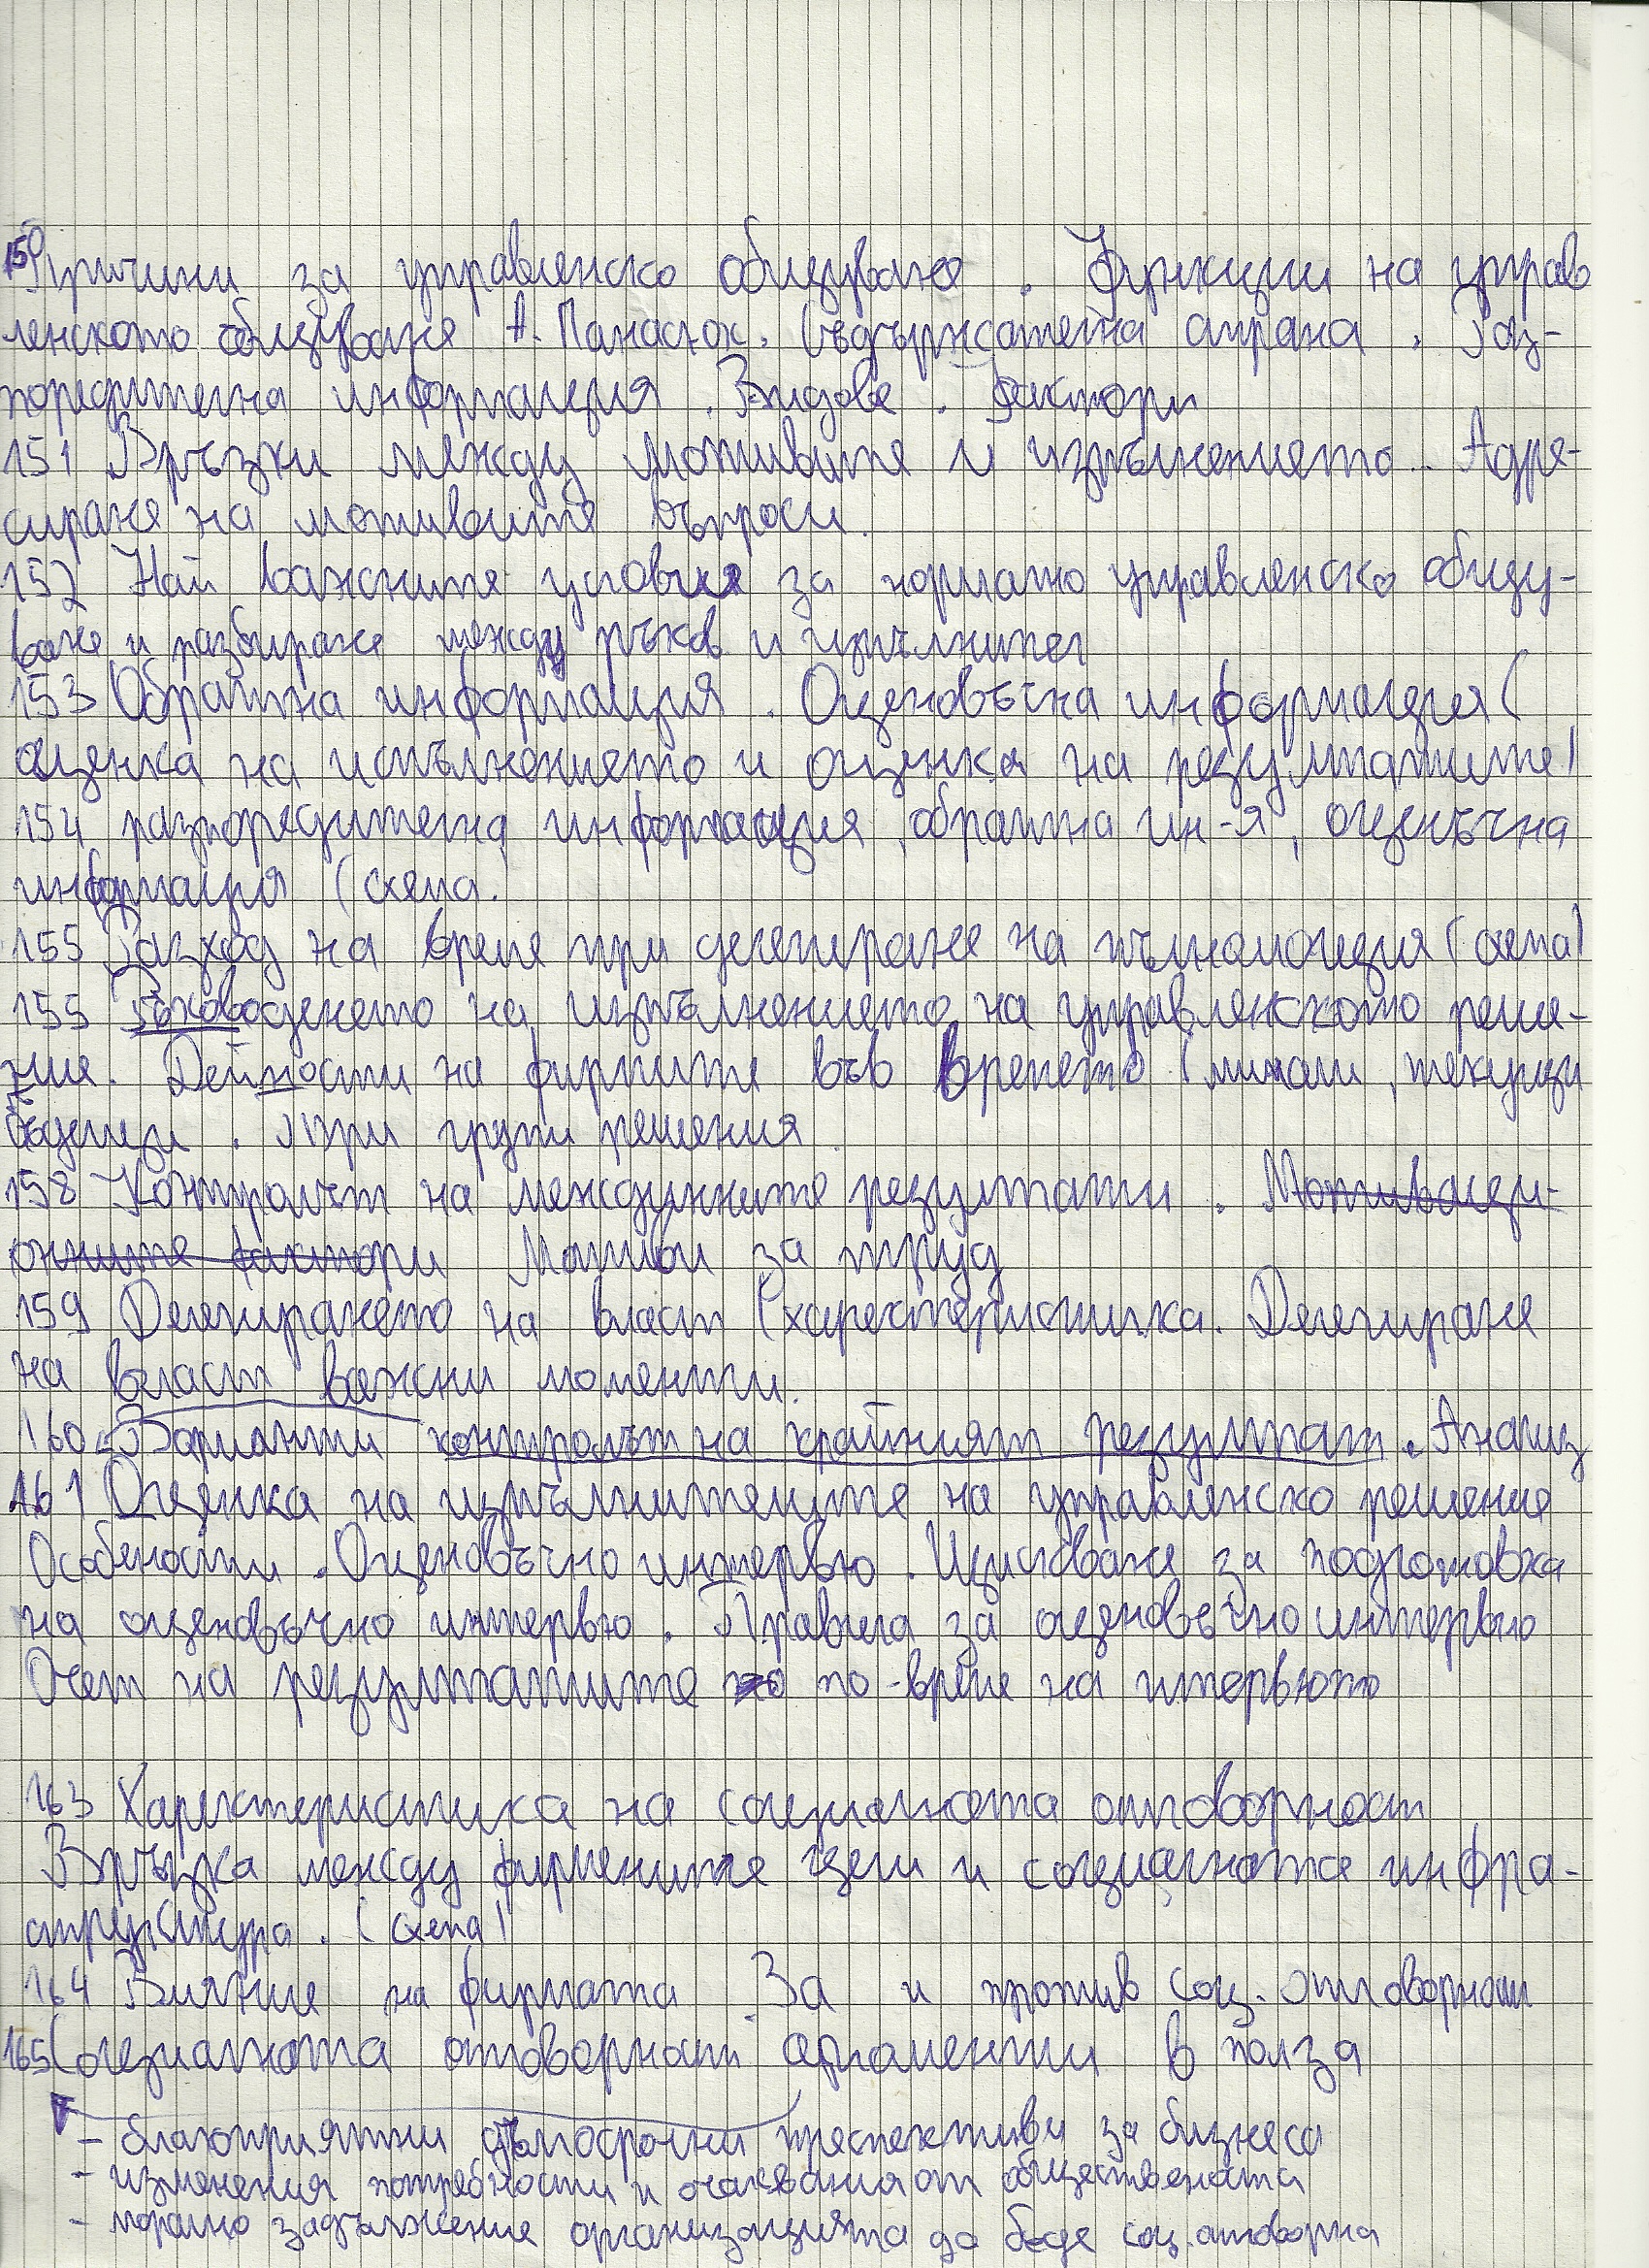 150 Причини за управленско общуване. Функции на управ
ленското общуване А. Панасюк. Съдържателна страна. Раз-
поредителна информация. Видове. Фактори
151 Връзки между мотивите и изпълнението. Адре-
сиране на мотивите въпроси.
152 Най важните условия за нормално управленско общу-
ване и разбиране между ръков и изпълнител
153 Обратна информация. Оценовъчна информация (
оценка на испълнението и оценка на резултатите)
154 разпоредителна информация, обратна ин-я, оценъчна
информация (схема.
155 Разход на време при делегиране на пълномощия (схема)
155 Ръководенето на изпълнението на управленското реше-
ние. Дейности на фирмите във времето (минали, текущи
бъдещи. При групи решения.
158 Контролът на междинните резултати. Мотиваци-
онните фактори Мотиви за труд
159 Делегирането на власт (характеристика. Делегиране
на власт важни моменти.
160 Варианти контролът на крайният резултат. Анализ
161 Оценка на изпълнителите на управленско решение
Особености. Оценовъчно интервю. Изискване за подготовка
на оценовъчно интервю. Правила за оценовъчно интервю
Очет на резултатите по-време на интервюто
163 Характеристика на социалната отговорност
Връзка между фирмените цели и социалната инфра-
структура. (схема)
164 Влияние на фирмата. За и против соц. отговорност
165 Социалната отговорност аргаменти в полза
- благоприятни дългосрочни преспективи за бизнеса
- изменения потребности и очаквания от обществеността
- морално задължение организацията да бъде соц. отговорна